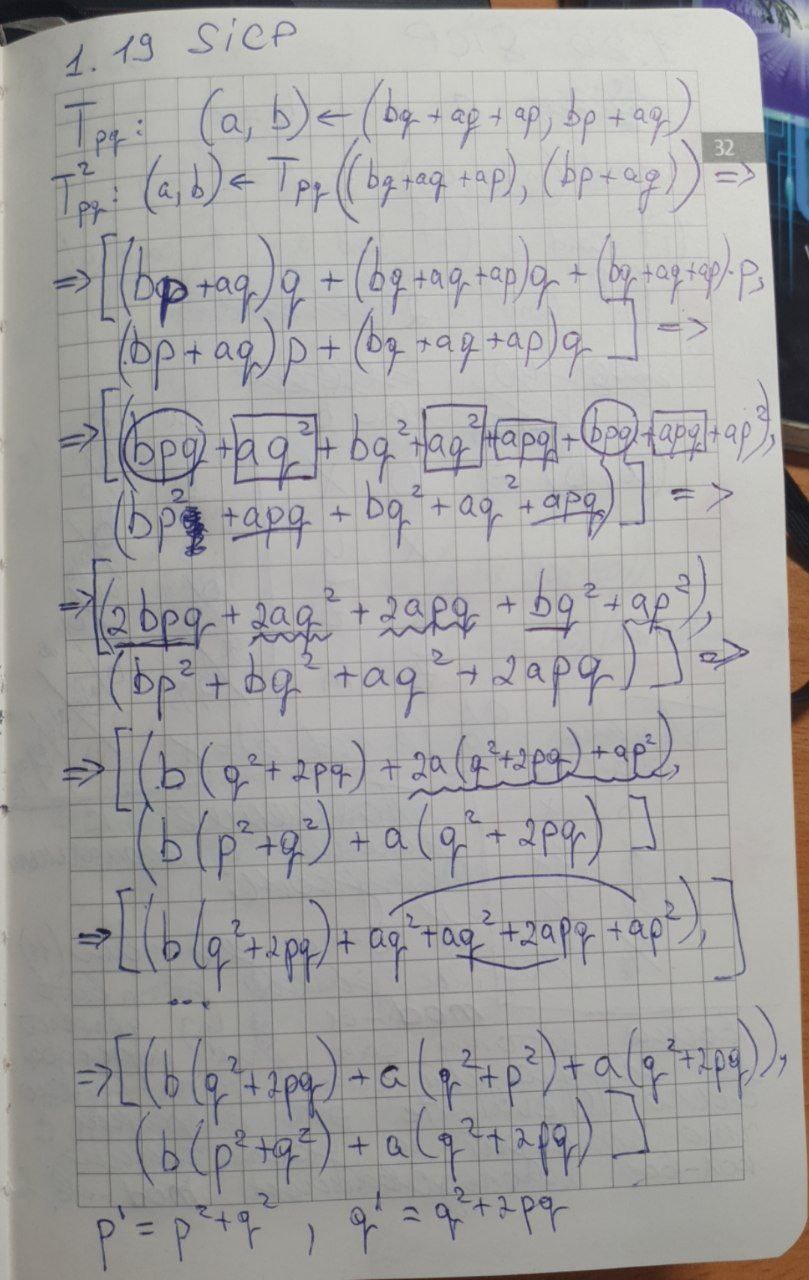 1.19 SiCP
T_pq: (a, b) ← (bq + aq + ap, bp + aq)
32
T²_pq: (a, b) ← T_pq((bq+aq+ap), (bp+aq)) =>
=> [(bp + aq)q + (bq + aq + ap)q + (bq + aq + ap)·p,
(bp + aq)p + (bq + aq + ap)q] =>
=> [(bpq + aq² + bq² + aq² + apq + bpq + apq + ap²),
(bp² + apq + bq² + aq² + apq)] =>
=> [(2bpq + 2aq² + 2apq + bq² + ap²),
(bp² + bq² + aq² + 2apq)] =>
=> [(b(q² + 2pq) + 2a(q² + 2pq) + ap²),
(b(p² + q²) + a(q² + 2pq)]
=> [(b(q² + 2pq) + aq² + aq² + 2apq + ap²),]
...
=> [(b(q² + 2pq) + a(q² + p²) + a(q² + 2pq)),
(b(p² + q²) + a(q² + 2pq)]
p' = p² + q², q' = q² + 2pq